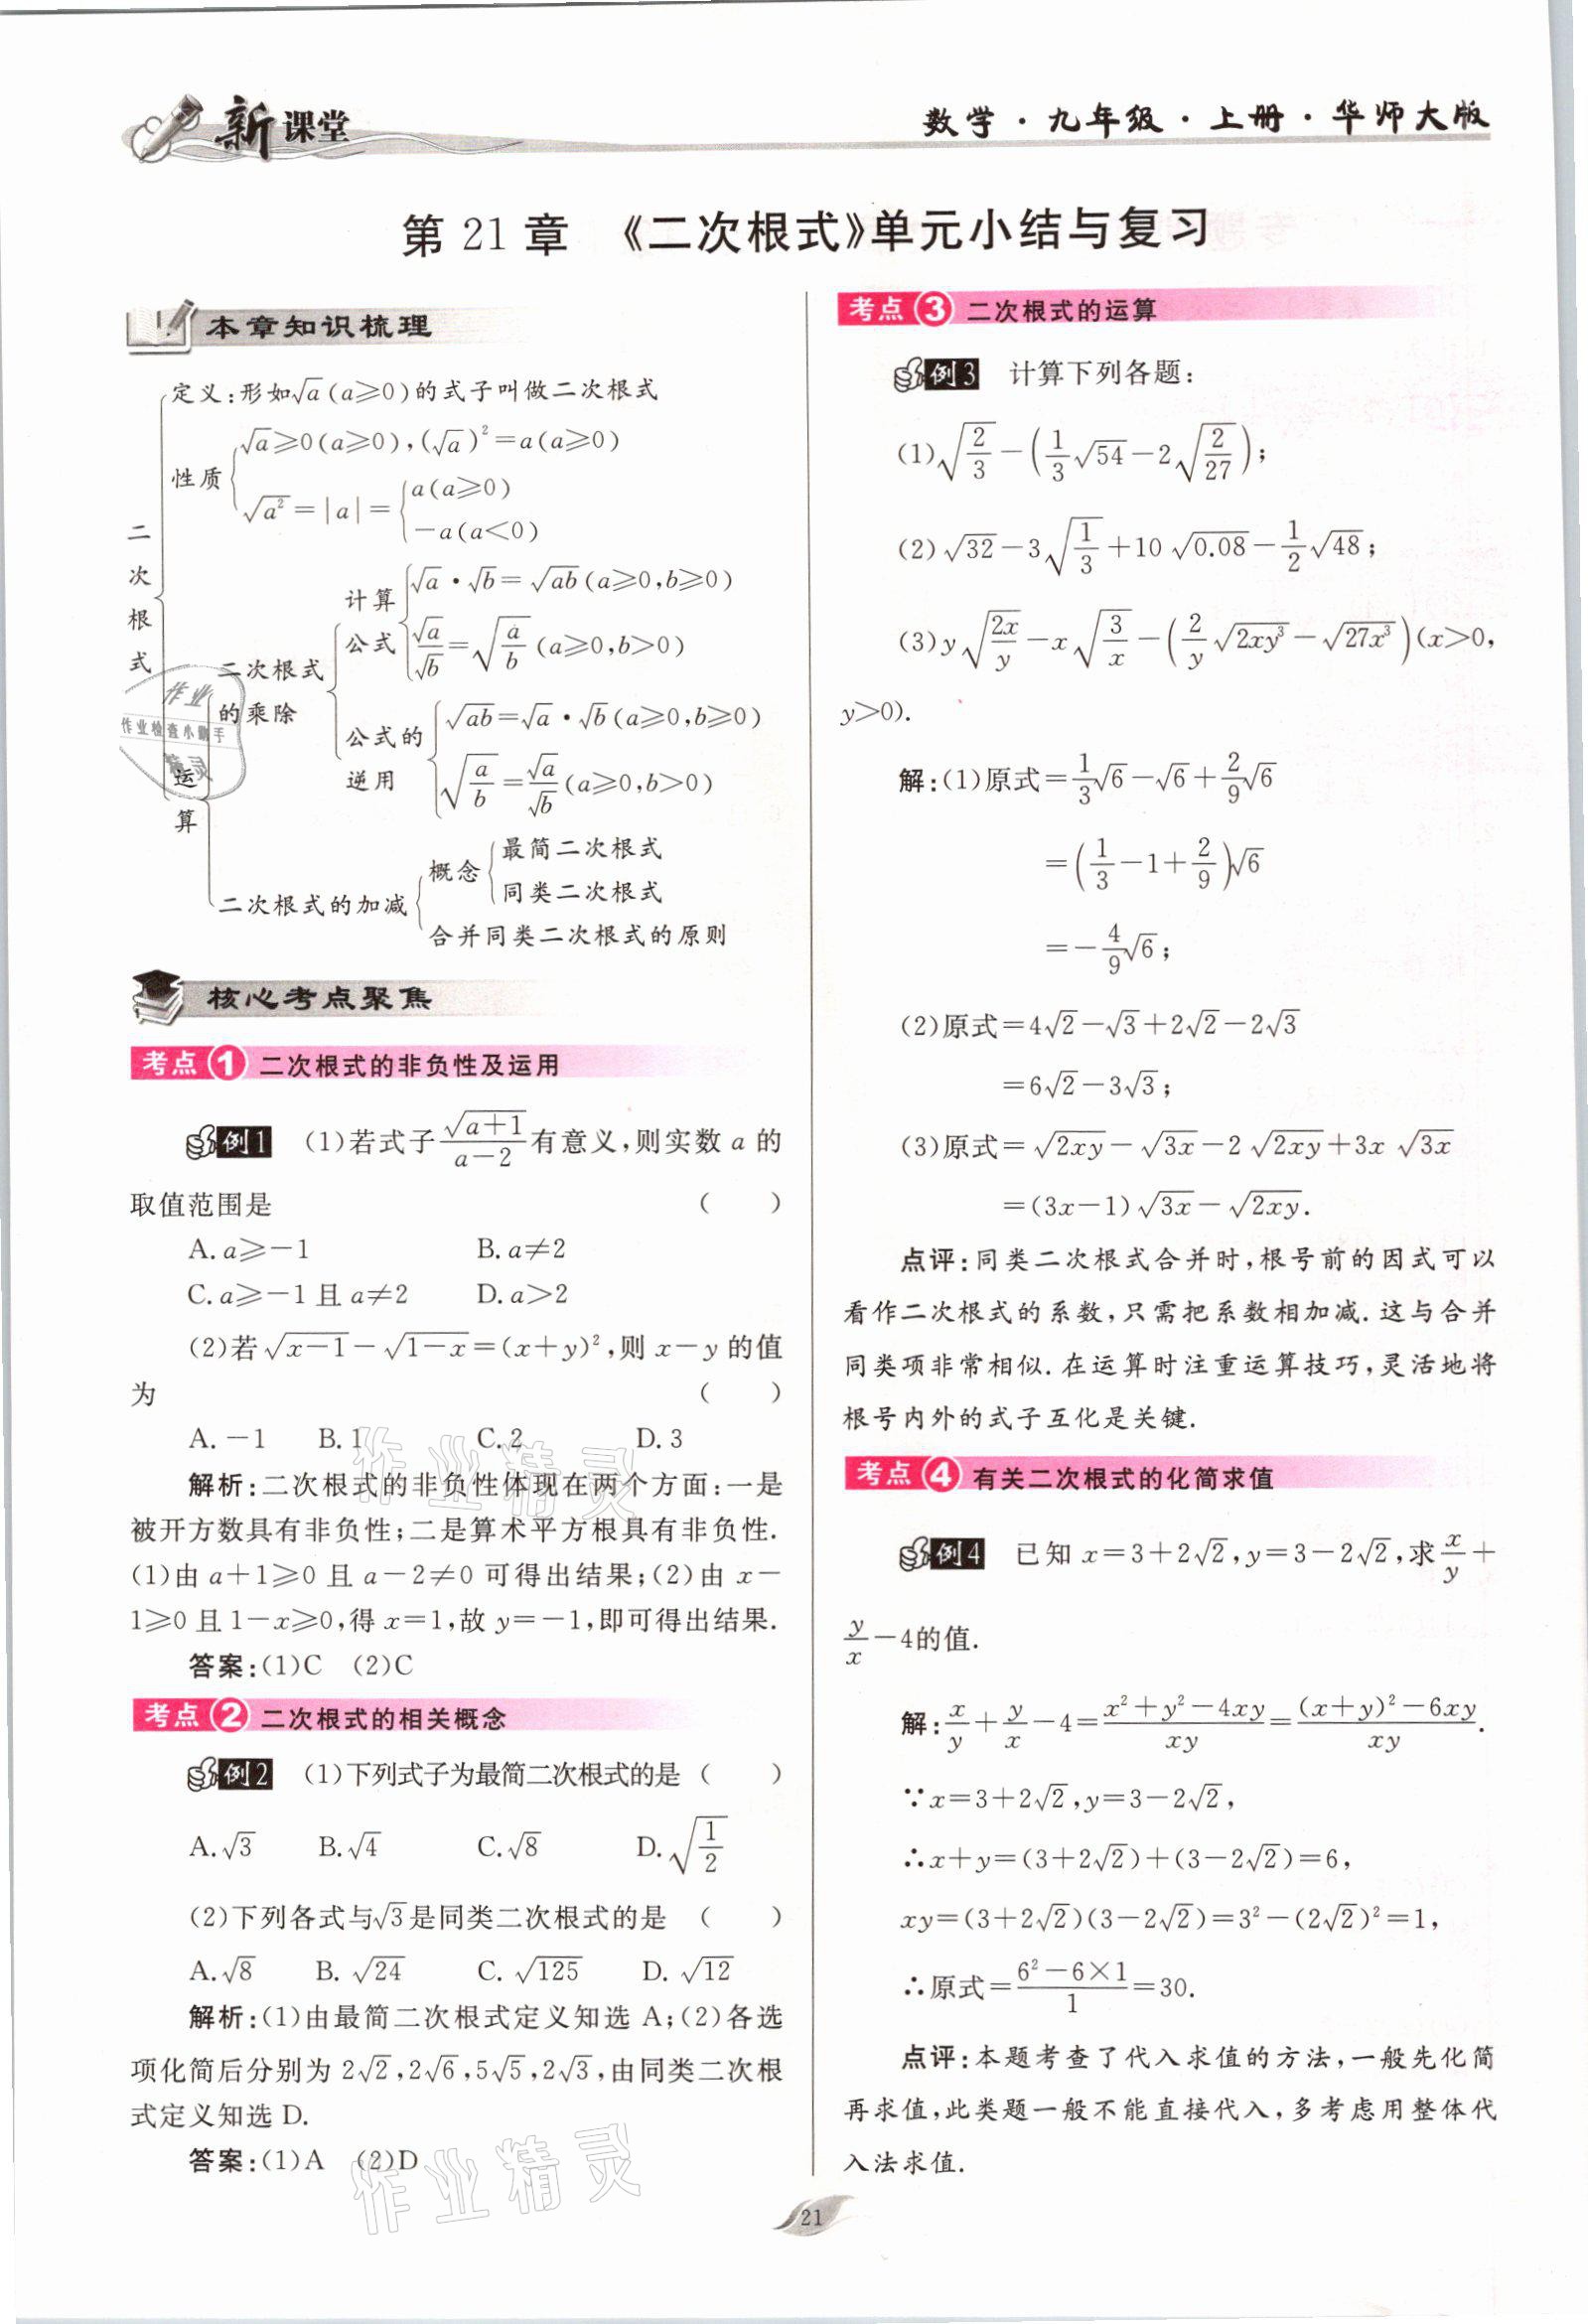 新课堂
数学·九年级·上册·华师大版
第 21 章 《二次根式》单元小结与复习
本章知识梳理
二次根式
定义:形如√a(a≥0)的式子叫做二次根式
性质
√a≥0(a≥0),(√a)²=a(a≥0)
√a²=|a|={a(a≥0)
-a(a<0)
运算
二次根式的乘除
计算公式
√a·√b=√ab(a≥0,b≥0)
√a/√b=√(a/b)(a≥0,b>0)
公式的逆用
√ab=√a·√b(a≥0,b≥0)
√(a/b)=√a/√b(a≥0,b>0)
二次根式的加减
概念
最简二次根式
同类二次根式
合并同类二次根式的原则
核心考点聚焦
考点1 二次根式的非负性及运用
例1 (1)若式子√(a+1)/(a-2)有意义,则实数 a 的
取值范围是 ( )
A. a≥-1 B. a≠2
C. a≥-1 且 a≠2 D. a>2
(2)若√(x-1)-√(1-x)=(x+y)²,则 x-y 的值
为 ( )
A. -1 B. 1 C. 2 D. 3
解析:二次根式的非负性体现在两个方面:一是
被开方数具有非负性;二是算术平方根具有非负性.
(1)由 a+1≥0 且 a-2≠0 可得出结果;(2)由 x-
1≥0 且 1-x≥0,得 x=1,故 y=-1,即可得出结果.
答案:(1)C (2)C
考点2 二次根式的相关概念
例2 (1)下列式子为最简二次根式的是 ( )
A. √3 B. √4 C. √8 D. √(1/2)
(2)下列各式与√3是同类二次根式的是 ( )
A. √8 B. √24 C. √125 D. √12
解析:(1)由最简二次根式定义知选 A;(2)各选
项化简后分别为 2√2,2√6,5√5,2√3,由同类二次根
式定义知选 D.
答案:(1)A (2)D
考点3 二次根式的运算
例3 计算下列各题:
(1)√(2/3)-(1/3√54-2√(2/27));
(2)√32-3√(1/3)+10√0.08-1/2√48;
(3)y√(2x/y)-x√(3/x)-(2/y√(2xy³)-√(27x³))(x>0,
y>0).
解:(1)原式=1/3√6-√6+2/9√6
=(1/3-1+2/9)√6
=-4/9√6;
(2)原式=4√2-√3+2√2-2√3
=6√2-3√3;
(3)原式=√(2xy)-√(3x)-2√(2xy)+3x√(3x)
=(3x-1)√(3x)-√(2xy).
点评:同类二次根式合并时,根号前的因式可以
看作二次根式的系数,只需把系数相加减.这与合并
同类项非常相似.在运算时注重运算技巧,灵活地将
根号内外的式子互化是关键.
考点4 有关二次根式的化简求值
例4 已知 x=3+2√2,y=3-2√2,求x/y+
y/x-4的值.
解:x/y+y/x-4=(x²+y²-4xy)/xy=((x+y)²-6xy)/xy.
∵x=3+2√2,y=3-2√2,
∴x+y=(3+2√2)+(3-2√2)=6,
xy=(3+2√2)(3-2√2)=3²-(2√2)²=1,
∴原式=(6²-6×1)/1=30.
点评:本题考查了代入求值的方法,一般先化简
再求值,此类题一般不能直接代入,多考虑用整体代
入法求值.
21
作业
作业检查小助手
精灵
作业精灵
作业精灵